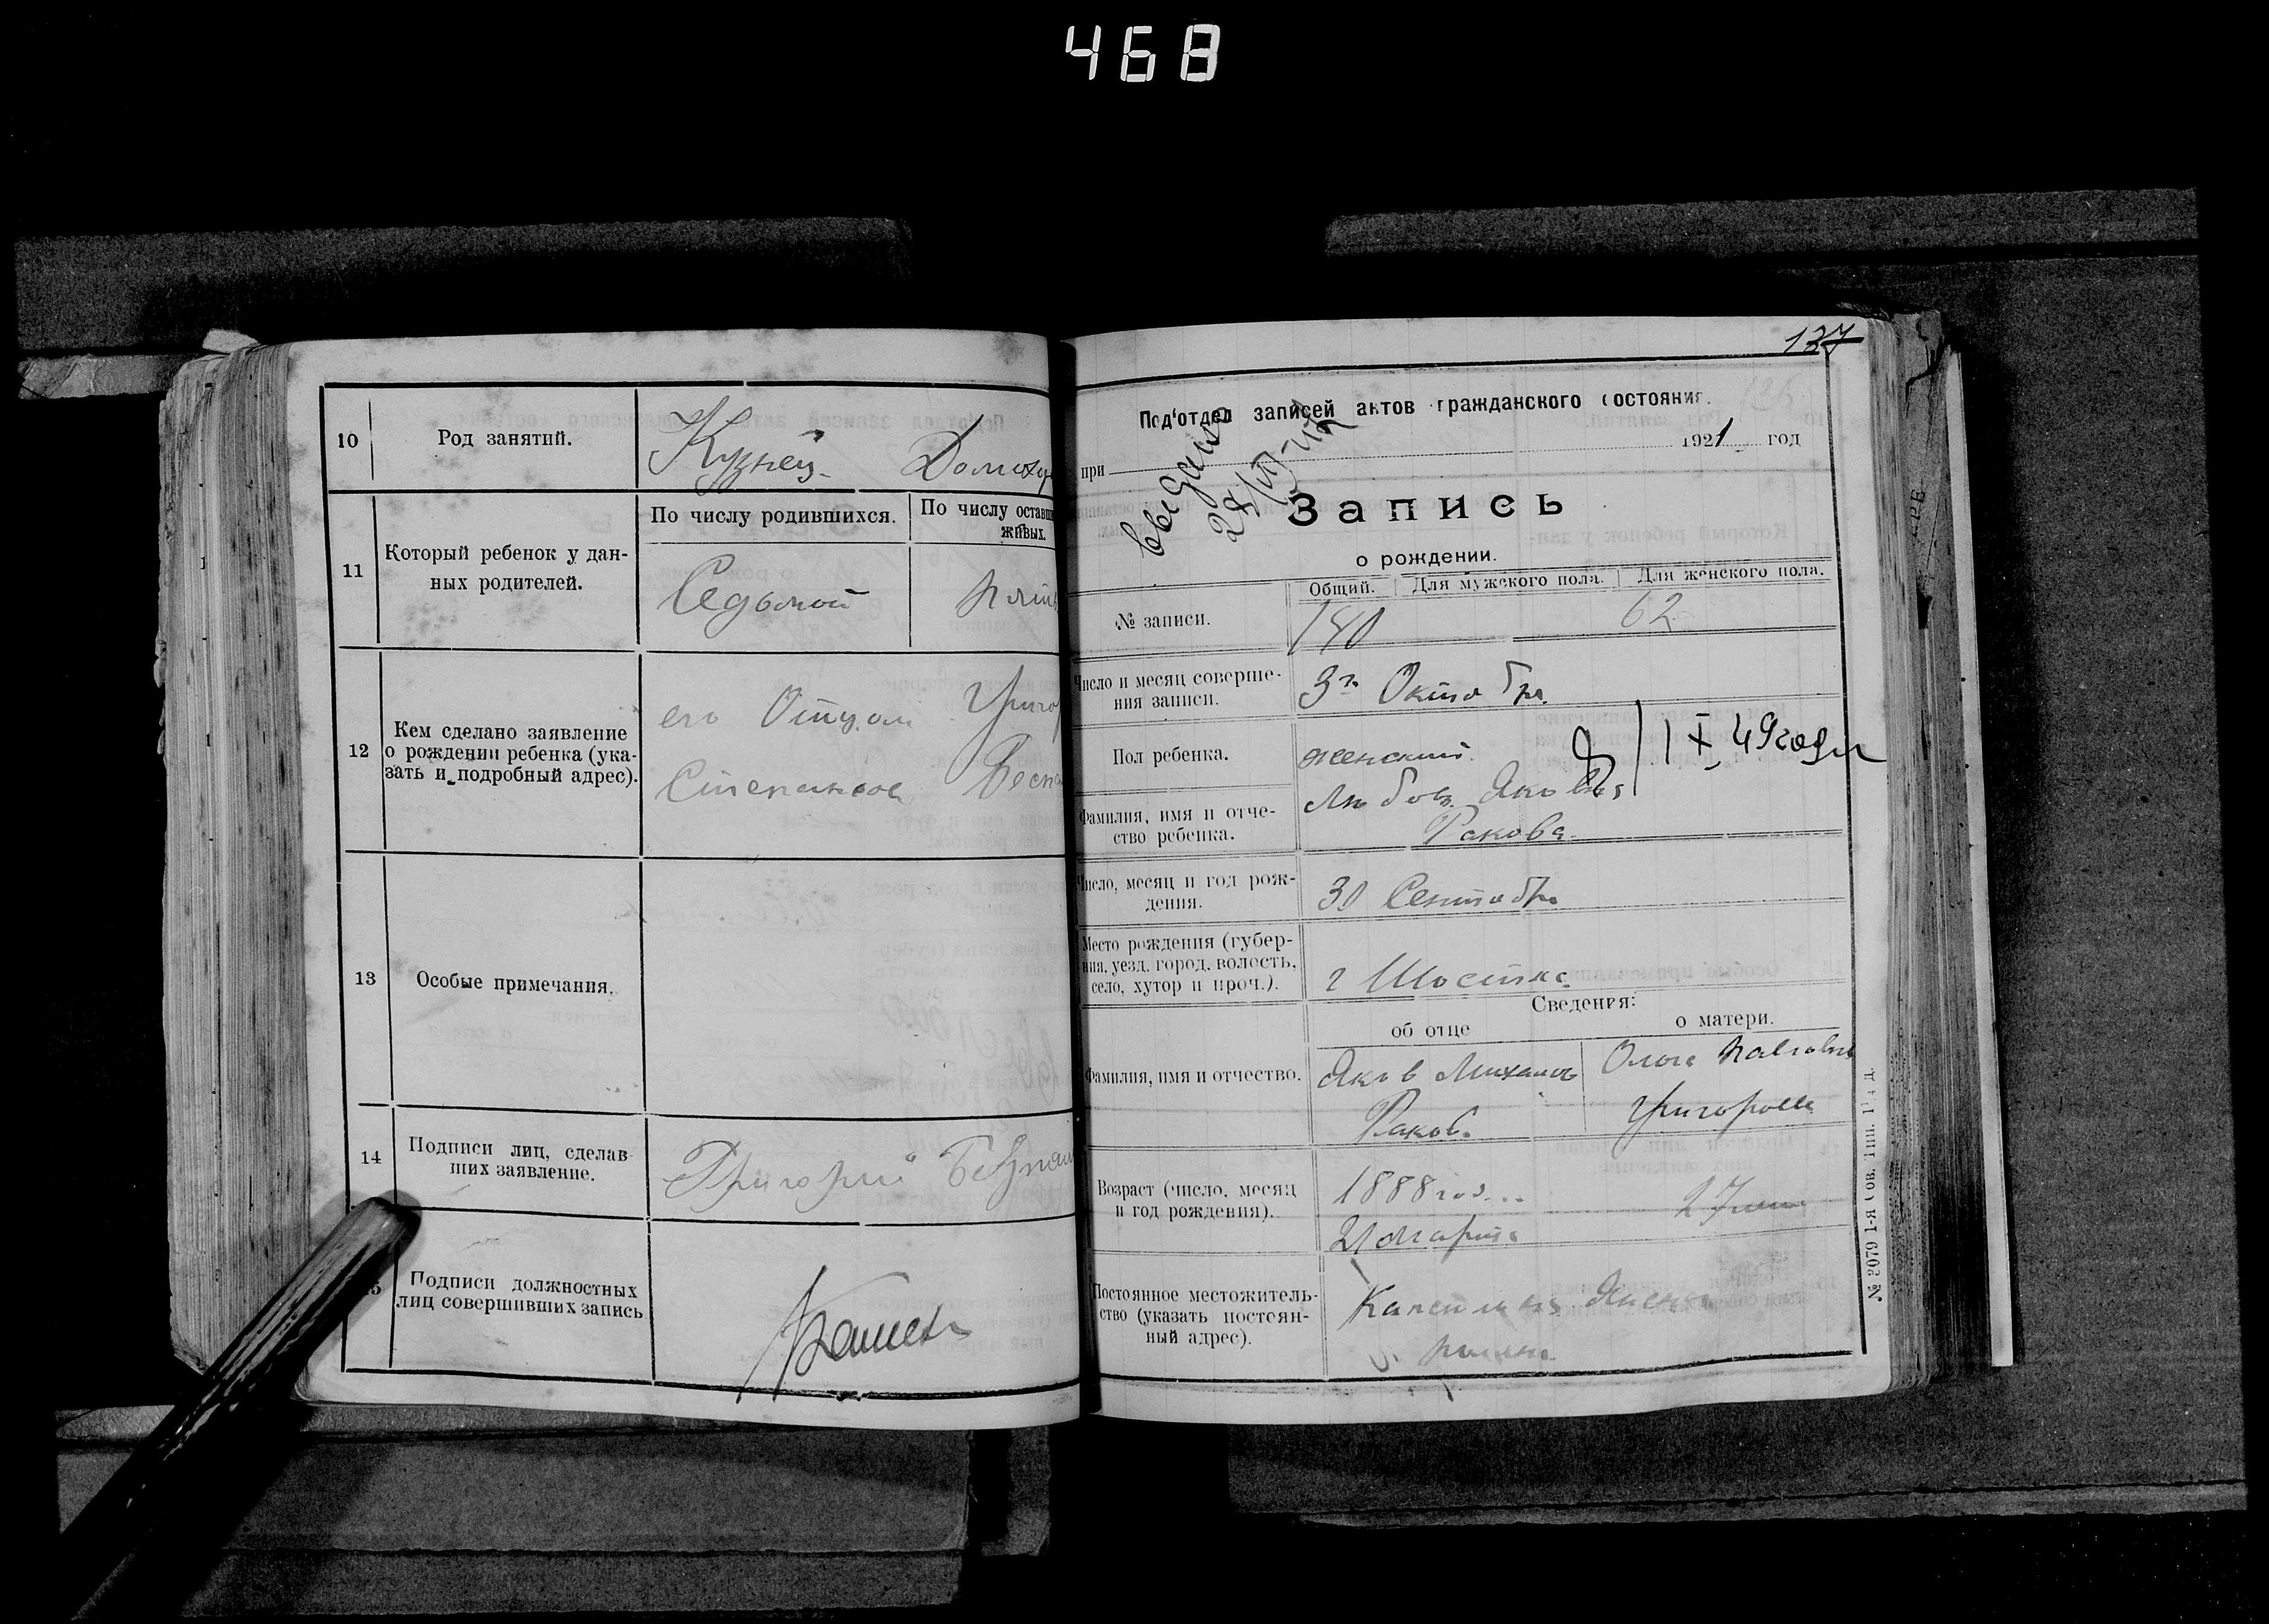 468
10
Род занятий.
Кузнец
11
Который ребенок у дан-
ных родителей.
По числу родившихся.
По числу оставш
живых.
Седьмой
12
Кем сделано заявление
о рождении ребенка (ука-
зать и подробный адрес).
его Отцом Григор
Степанков
13
Особые примечания.
14
Подписи лиц, сделав
ших заявление.
Григорий
5
Подписи должностных
лиц совершивших запись
127
Под'отдел записей актов гражданского состояния.
при 1921 год
Выдано
Запись
о рождении.
Общий. Для мужского пола. Для женского пола.
№ записи.
140 62
Число и месяц соверше-
ния записи.
3го Октября
Пол ребенка.
женский.
1 X 49 года
Фамилия, имя и отче-
ство ребенка.
Любовь
Ракова
Число, месяц и год рож-
дения.
30 Сентября
Место рождения (губер-
ния, уезд, город, волость,
село, хутор и проч.).
г Шостка
Сведения:
об отце
о матери.
Фамилия, имя и отчество.
Яков Михайлов
Раков
Ольга Павловна
Возраст (число, месяц
и год рождения).
1888 год
21 марта
27 лет
Постоянное местожитель-
ство (указать постоян-
ный адрес).
№ 2079 1-я Сов. Тип.